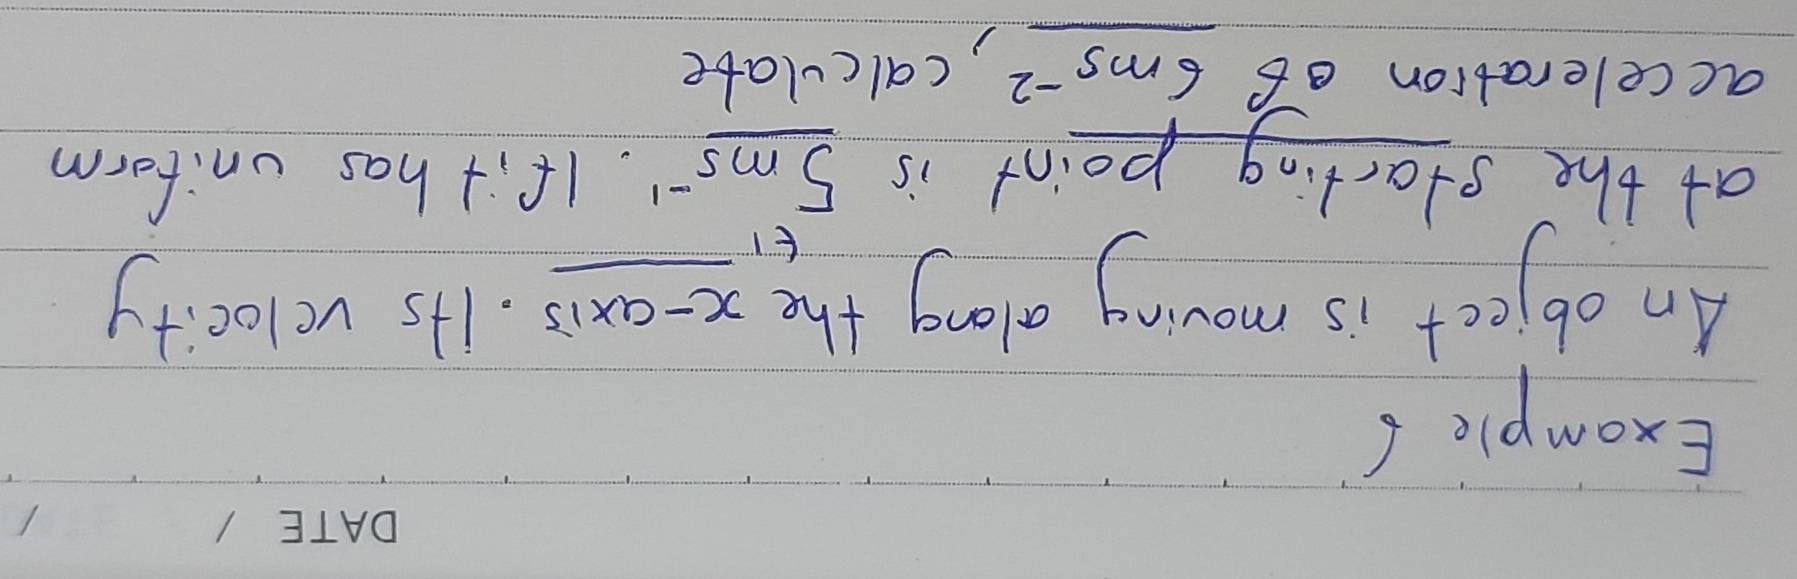 DATE / /
Example 6
An object is moving along the x-axis. Its velocity
t1
at the starting point is 5 ms⁻¹. If it has uniform
acceleration of 6 ms⁻², calculate